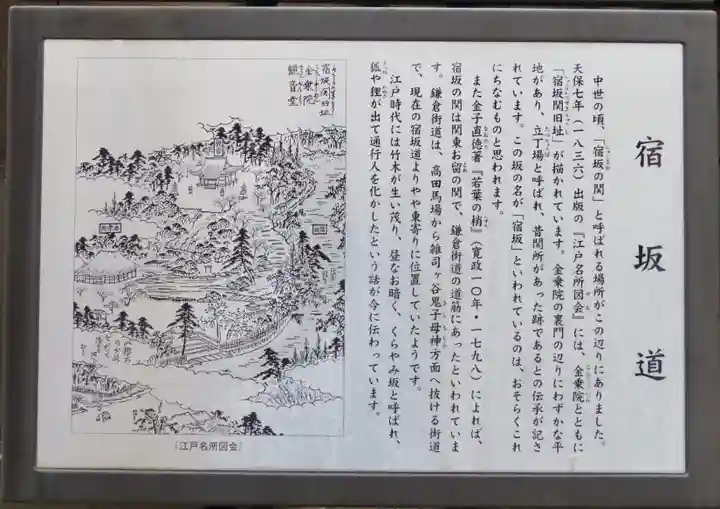 宿坂道
中世の頃、「宿坂の関」と呼ばれる場所がこの辺りにありました。
天保七年(一八三六)出版の『江戸名所図会』には、金乗院とともに
「宿坂関旧址」が描かれています。金乗院の裏門の辺りにわずかな平
地があり、立丁場と呼ばれ、昔関所があった跡であるとの伝承が記さ
れています。この坂の名が「宿坂」といわれているのは、おそらくこれ
にちなむものと思われます。
また金子直德著『若葉の梢』(寛政一〇年・一七九八)によれば、
宿坂の関は関東お留の関で、鎌倉街道の道筋にあったといわれていま
す。鎌倉街道は、高田馬場から雑司ヶ谷鬼子母神方面へ抜ける街道
で、現在の宿坂道よりやや東寄りに位置していたようです。
江戸時代には竹木が生い茂り、昼なお暗く、くらやみ坂と呼ばれ、
狐や狸が出て通行人を化かしたという話が今に伝わっています。
宿坂関旧址
金乗院
観音堂
『江戸名所図会』